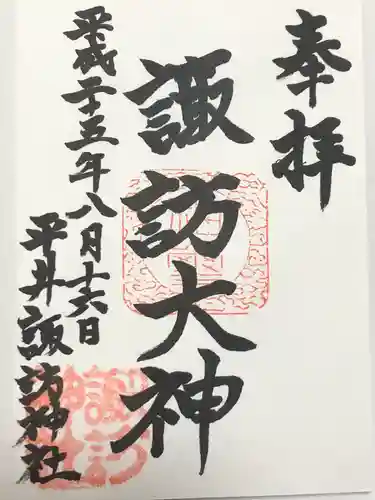 奉拝
諏訪大神
平成二十五年八月十六日
平井諏訪神社